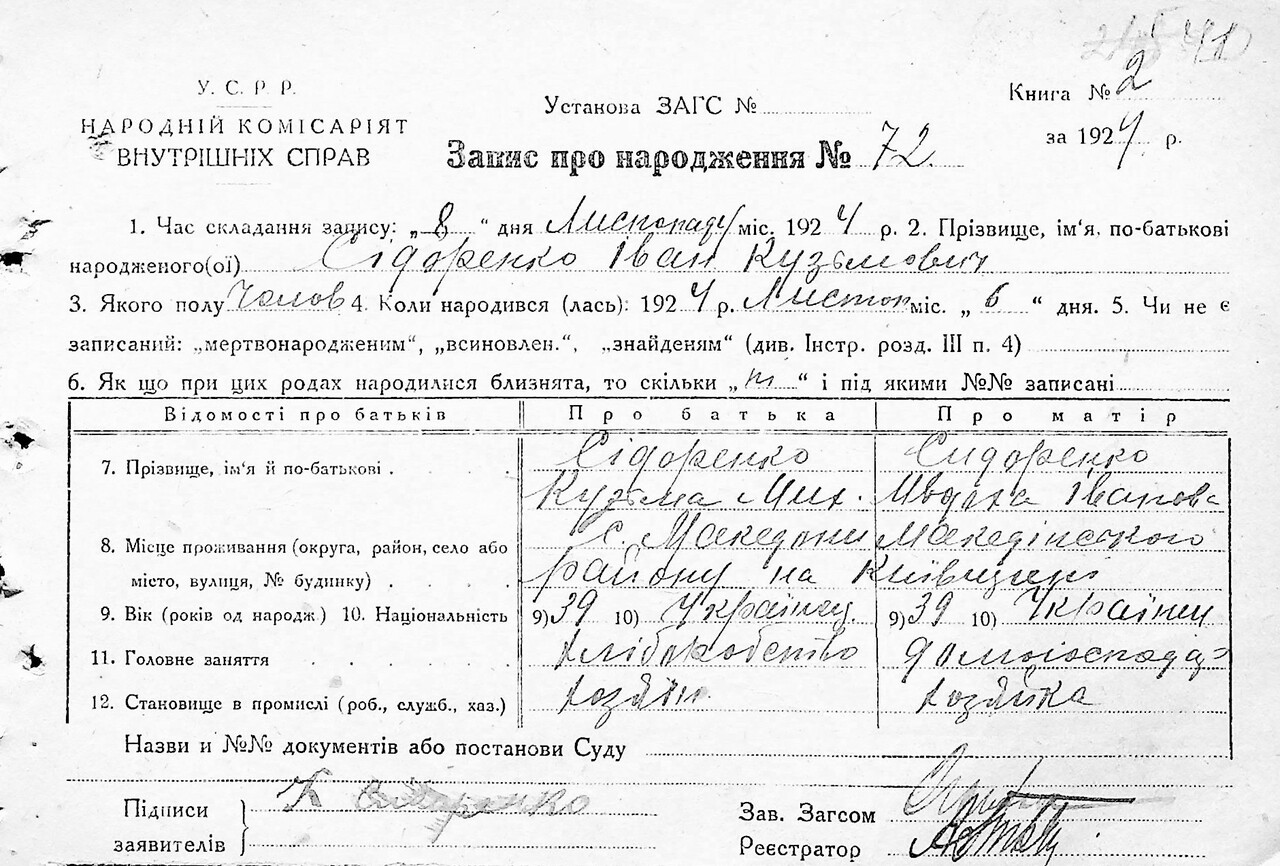 У. С. Р. Р.
НАРОДНІЙ КОМІСАРІЯТ
ВНУТРІШНІХ СПРАВ
Установа ЗАГС №
Книга № 2
за 1924 р.
Запис про народження № 72.
1. Час складання запису: „8“ дня Листопаду міс. 1924 р. 2. Прізвище, ім'я, по-батькові
народженого(ої) Сідоренко Іван Кузьмович
3. Якого полу Чолов 4. Коли народився (лась): 1924 р. Листоп міс. „6“ дня. 5. Чи не є
записаний: „мертвонародженим“, „всиновлен.“, „знайденям“ (див. Інстр. розд. III п. 4)
6. Як що при цих родах народилися близнята, то скільки „ “ і під якими №№ записані
Відомості про батьків Про батька Про матір
7. Прізвище, ім'я й по-батькові Сідоренко Сидоренко
Кузьма Мих. Іванова
8. Місце проживання (округа, район, село або с. Македони Македінського
місто, вулиця, № будинку) району на Київщині
9. Вік (років од народж.) 10. Національність 9) 39 10) Українец 9) 39 10) Українц
11. Головне заняття хлібробство
12. Становище в промислі (роб., служб., хаз.) хозяїн хозяйка
Назви и №№ документів або постанови Суду
Підписи К Сидоренко
заявителів
Зав. Загсом
Реєстратор